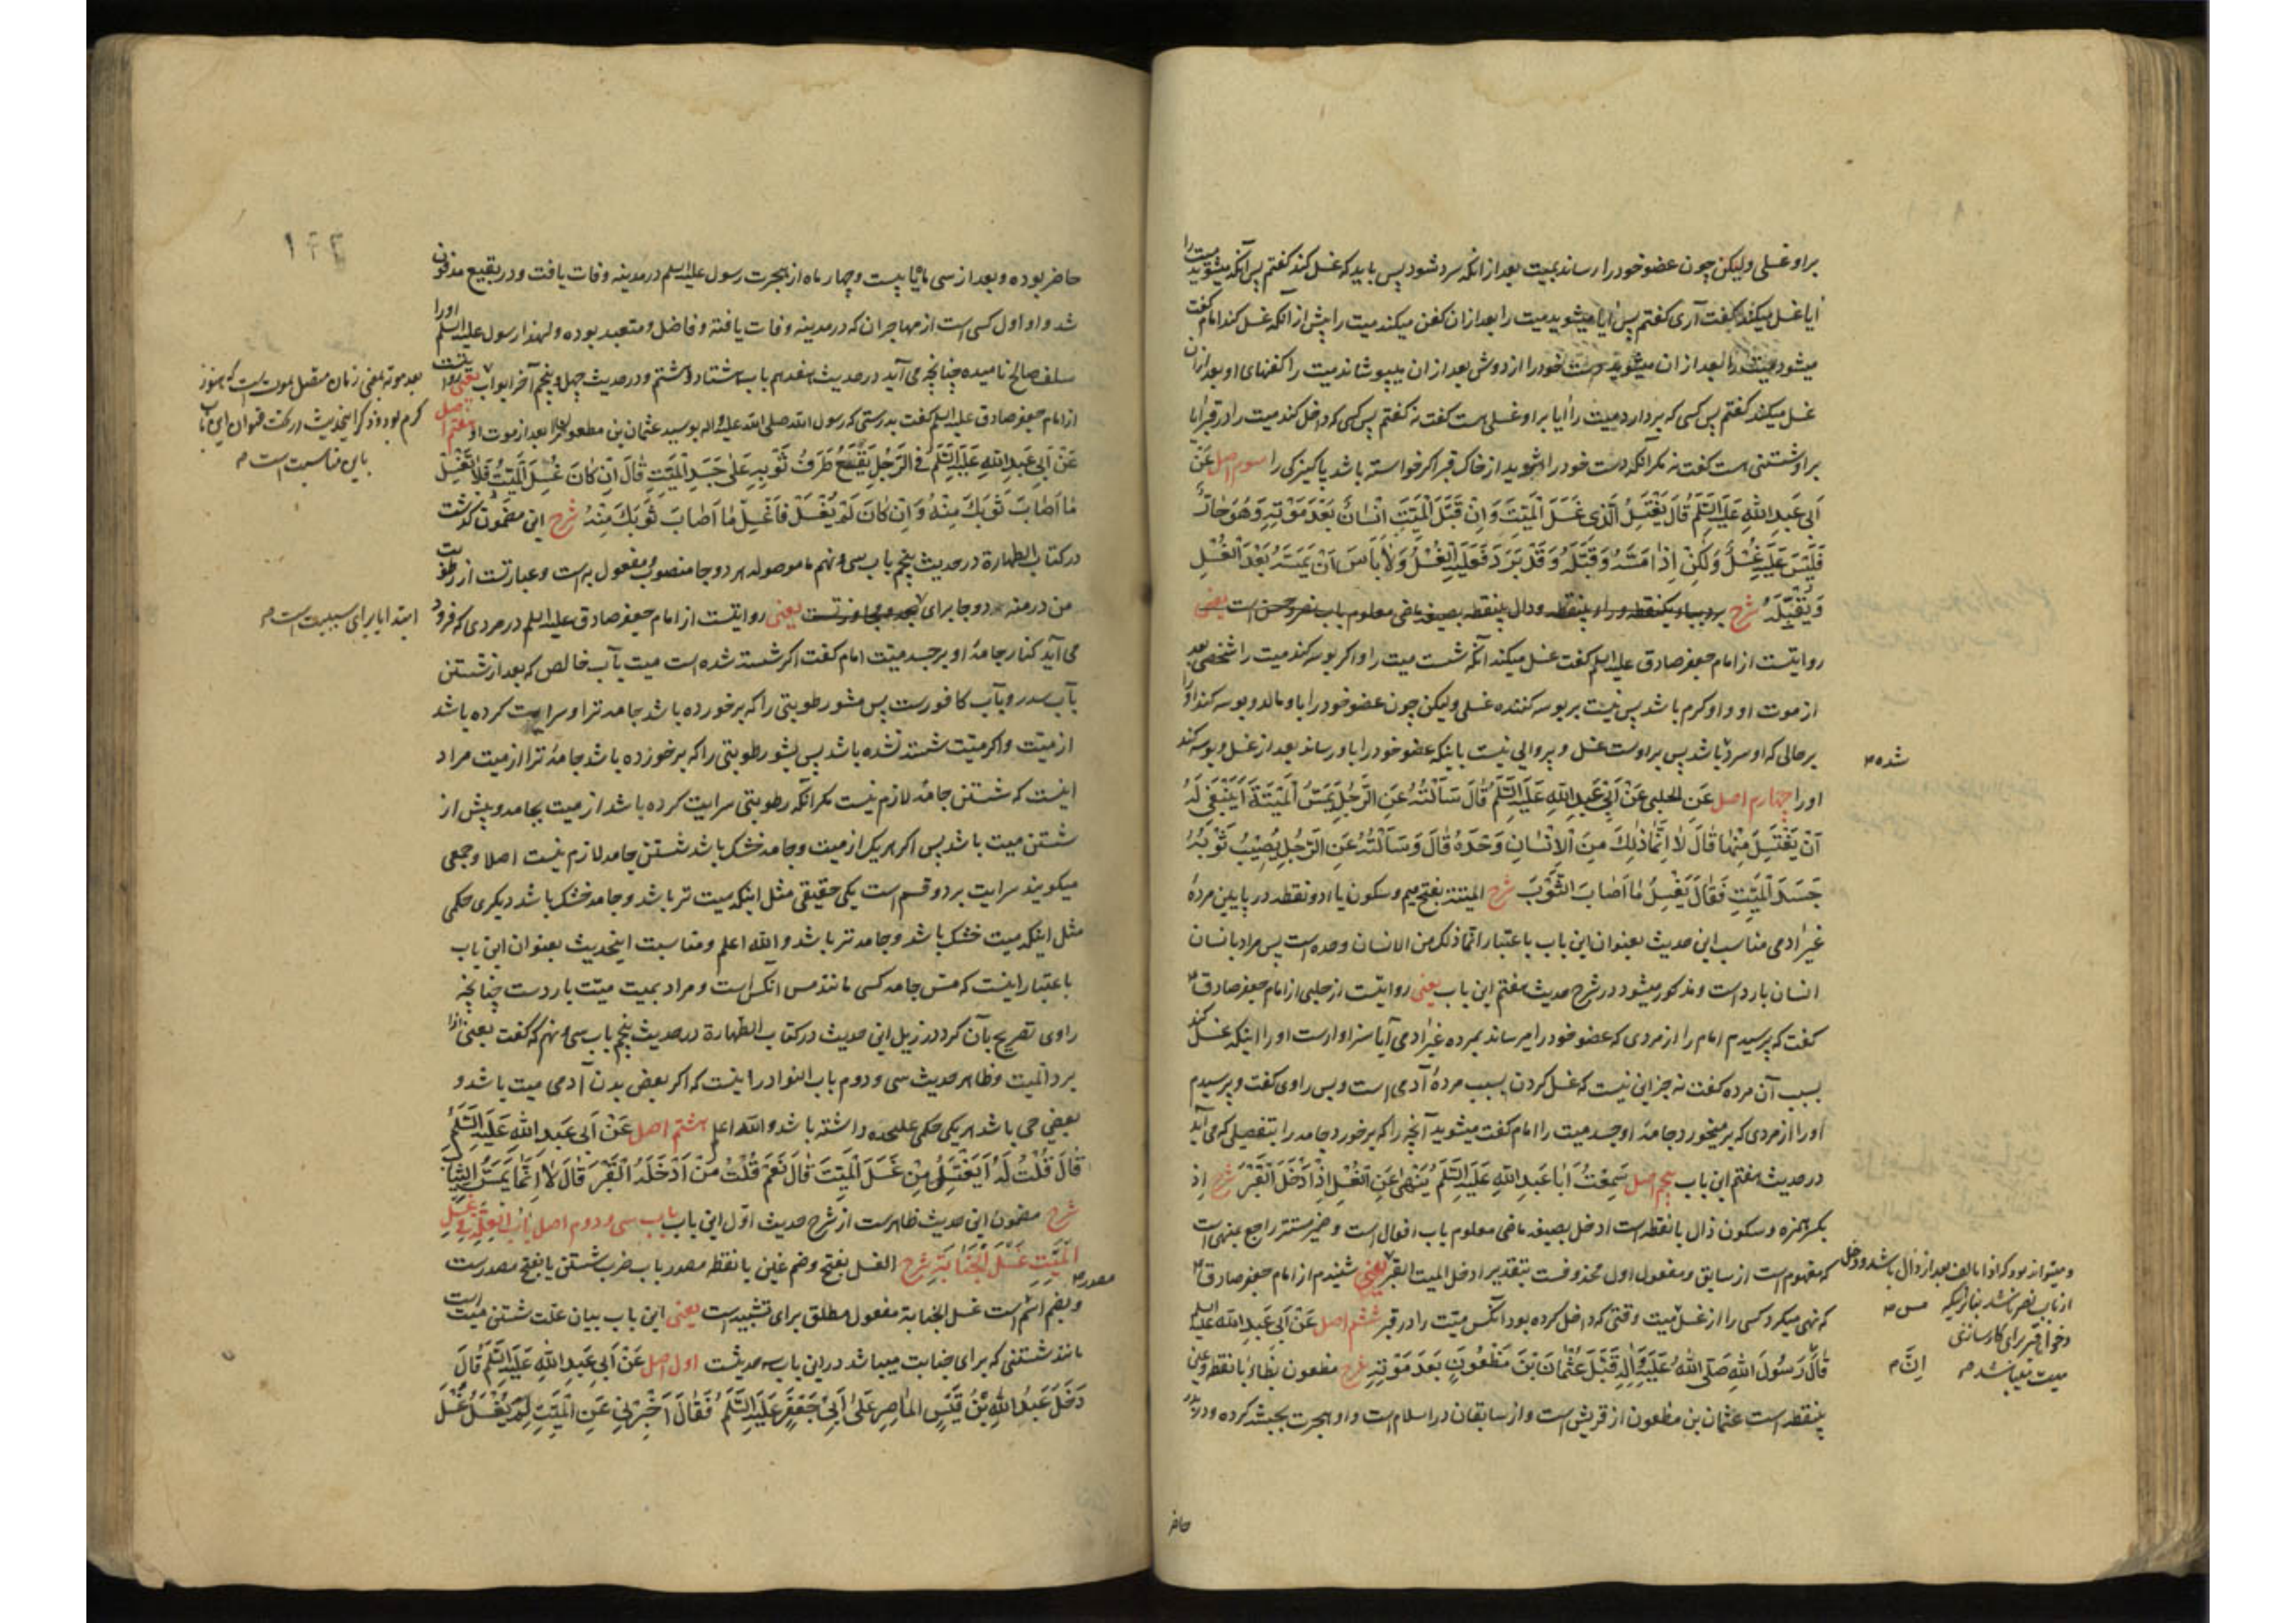 براو غسلی ولیکن چون عضو خود را رساند بمیت بعد از انکه سرد شود پس باید که غسل کند کفتم پس آنکه میشوید میت را
ایا غسل میکند کفت آری کفتم پس ایا میشوید میت را بعد ازان کفن میکند میت را پیش از آنکه غسل کند امام کفت
میشوید بعد از ان میشوید دست خود را از دوش بعد از ان میپوشاند میت را کفنهای او بعد ازان
غسل میکند کفتم پس کسی که بردارد میت را ایا براو غسلی هست کفت نه کفتم پس کسی که داخل کند میت را در قبر ایا
براو شستنی هست کفت نه مکر آنکه دست خود را بشوید از خاک قبر اکر خواسته باشد پاکیزکی را سوم اصل عَنْ
اَبی عَبدِ اللهِ عَلَیهِ السَّلَم قَالَ یَغْتَسِلُ الَّذی غَسَلَ الْمَیِّتَ وَ اِنْ قَبَّلَ الْمَیِّتَ اِنْسَانٌ بَعْدَ مَوْتِهِ وَ هُوَ حَارٌّ
فَلَیْسَ عَلَیْهِ غُسْلٌ وَلَکِنْ اِذَا مَسَّهُ وَ قَبَّلَهُ وَ قَدْ بَرَدَ فَعَلَیْهِ الْغُسْلُ وَ لَا بَأسَ اَنْ یَمَسَّهُ بَعْدَ الْغُسْلِ
وَ یُقَبِّلَهُ شرح برد بباء یکنقطه و راء بینقطه و دال بینقطه بصیغه ماضی معلوم باب نصر و حسن است یعنی
روایتست از امام جعفر صادق علیه السلم کفت غسل میکند آنکه شست میت را و اکر بوسه کند میت را شخصی بعد
از موت او و او کرم باشد پس نیست بر بوسه کننده غسلی ولیکن چون عضو خود را باو مالد و بوسه کند او را
بر حالی که او سرد شده باشد پس براوست غسل و پروایی نیست باینکه عضو خود را باو رساند بعد از غسل و بوسه کند
او را چهارم اصل عَنِ الحلبی عَنْ اَبی عَبدِ اللهِ عَلَیهِ السَّلَم قَالَ سَأَلْتُهُ عَنِ الرَّجُلِ یَمَسُّ الْمَیْتَةَ اَیَنْبَغی لَهُ
اَنْ یَغْتَسِلَ مِنْهَا قَالَ لَا اِنَّمَا ذٰلِکَ مِنَ الْاِنْسَانِ وَحْدَهُ قَالَ وَ سَأَلْتُهُ عَنِ الرَّجُلِ یُصِیْبُ ثَوْبُهُ
جَسَدَ الْمَیِّتِ فَقَالَ یَغْسِلُ مَا اَصَابَ الثَّوْبَ شرح المیتة بفتح میم و سکون یاء دو نقطه در پایین مرده
غیر ادمی مناسب این حدیث بعنوان این باب باعتبار انما ذلک من الانسان وحده است پس مراد بانسان
انسان بارد است و مذکور میشود در شرح حدیث هفتم این باب یعنی روایتست از حلبی از امام جعفر صادق
کفت که پرسیدم امام را از مردی که عضو خود را میرساند بمرده غیر ادمی آیا سزاوارست او را اینکه غسل کند
بسبب آن مرده کفت نه جز این نیست که غسل کردن بسبب مردهٔ آدمی است و بس راوی کفت و پرسیدم
او را از مردی که بر میخورد جامهٔ او جسد میت را امام کفت میشوید آنچه را که برخورد جامه را بتفصیلی که می آید
در حدیث هفتم این باب پنجم اصل سَمِعْتُ اَبَا عَبدِ اللهِ عَلَیهِ السَّلَم یَنْهیٰ عَنِ الْغُسْلِ اِذْ اَدْخَلَ الْقَبْرَ شرح اِذ
بکسر همزه و سکون ذال بانقطه است ادخل بصیغه ماضی معلوم باب افعال است و ضمیر مستتر راجع
که مفهوم است از سابق و مفعول اول محذوفست بتقدیر ادخل المیت القبر یعنی شنیدم از امام جعفر صادق
که نهی میکرد کسی را از غسل میت وقتی که داخل کرده بود آنکس میت را در قبر ششم اصل عَنْ اَبی عَبدِ الله علیه السلم
قَالَ رَسُولَ اللهِ صَلَّی اللهُ عَلَیْهِ وَ اٰلِهِ قَبَّلَ عُثْمَانَ بْنَ مَظْعُونٍ بَعْدَ مَوْتِهِ شرح مظعون بظاء بانقطه و عین
بینقطه است عثمان بن مظعون از قریش است و از سابقان در اسلام است و او هجرت بحبشه کرده و در بدر
شده
و میتواند بود که اذا بالف بعد از ذال باشد و دخل
از باب نصر باشد بنابرینکه مس
دخول قبر برای کارسازی
میت میباشد
اِنَّ
حاضر
۱۴۲
حاضر بوده و بعد از سی ماه یا بیست و چهار ماه از هجرت رسول علیه السلم در مدینه وفات یافت و در بقیع مدفون
شد و او اول کسی است از مهاجران که در مدینه وفات یافته و فاضل و متعبد بوده و لهذا رسول علیه السلم او را
سلف صالح نامیده چنانچه می آید در حدیث هفدهم باب هشتاد و هشتم و در حدیث چهل و پنجم آخر ابواب یعنی روایتست
از امام جعفر صادق علیه السلم کفت بدرستی که رسول الله صلی الله علیه و اله بوسید عثمان بن مظعون را بعد از موت او هفتم اصل
عَنْ اَبی عَبدِ اللهِ عَلَیهِ السَّلَم فی الرَّجُلِ یَقَعُ طَرَفُ ثَوْبِهِ عَلیٰ جَسَدِ الْمَیِّتِ قَالَ اِنْ کَانَ غُسِلَ الْمَیِّتُ فَلَا تَغْسِلْ
مَا اَصَابَ ثَوْبَکَ مِنْهُ وَ اِنْ کَانَ لَمْ یُغْسَلْ فَاغْسِلْ مَا اَصَابَ ثَوْبَکَ مِنْهُ شرح این مضمون کذشت
در کتاب الطهارة در حدیث پنجم باب سی و نهم ما موصوله هر دو جا منصوب و مفعول به است و عبارتست از رطوبت
من در منه دو جا برای یعنی روایتست از امام جعفر صادق علیه السلم در مردی که فرود
می آید کنار جامهٔ او بر جسد میت امام کفت اکر شسته شده است میت بآب خالص که بعد از شستن
بآب سدر و بآب کافورست پس مشور رطوبتی را که برخورده باشد جامه ترا و سرایت کرده باشد
از میت و اکر میت شسته نشده باشد پس بشور رطوبتی را که برخورده باشد جامهٔ ترا از میت مراد
اینست که شستن جامهٔ لازم نیست مکر آنکه رطوبتی سرایت کرده باشد از میت بجامه و پیش از
شستن میت باشد پس اکر هر یک از میت و جامه خشک باشد شستن جامه لازم نیست اصلا و جمعی
میکویند سرایت بر دو قسم است یکی حقیقی مثل اینکه میت تر باشد و جامه خشک باشد دیکری حکمی
مثل اینکه میت خشک باشد و جامه تر باشد و الله اعلم و مناسبت اینحدیث بعنوان این باب
باعتبار اینست که مس جامه کسی مانند مس آنکس است و مراد بمیت میت بارد است چنانچه
راوی تصریح بآن کرد در ذیل این حدیث در کتاب الطهارة در حدیث پنجم باب سی و نهم که کفت یعنی اذا
برد المیت و ظاهر حدیث سی و دوم باب النوادر اینست که اکر بعض بدن آدمی میت باشد و
بعضی حی باشد هر یکی حکمی علیحده داشته باشد و الله اعلم هشتم اصل عَنْ اَبی عَبدِ اللهِ عَلَیهِ السَّلَم
قَالَ قُلْتُ لَهُ اَیَغْتَسِلُ مِنْ غَسَلَ الْمَیِّتَ قَالَ نَعَمْ قُلْتُ مَنْ اَدْخَلَهُ الْقَبْرَ قَالَ لَا اِنَّمَا یَمَسُّ الثِّیَابَ
شرح مضمون این حدیث ظاهرست از شرح حدیث اول این باب باب سی و دوم اصل بَابُ الْعِلَّةِ فِی غَسْلِ
الْمَیِّتِ غَسْلَ الْجَنَابَةِ شرح الغسل بفتح و ضم غین بانقطه مصدر باب ضرب شستن یا بفتح مصدرست
و بضم اسم مصدر است غسل الجنابة مفعول مطلق برای تشبیه است یعنی این باب بیان علت شستن میت است
مانند شستنی که برای جنابت میباشد در این باب سه حدیثست اول اصل عَنْ اَبی عَبدِ اللهِ عَلَیهِ السَّلَم قَالَ
دَخَلَ عَبْدُ اللهِ بْنُ قَیْسٍ الْمَاصِرِ عَلیٰ اَبی جَعْفَرٍ عَلَیهِ السَّلَم فَقَالَ اَخْبِرْنِی عَنِ الْمَیِّتِ لِمَ یُغْسَلُ غُسْلَ
بعد موته بمعنی زمان متصل بموت است که هنوز
کرم بود و ذکر اینحدیث در تحت عنوان این باب
باین مناسبت است
ابتدا یا برای سببیت است